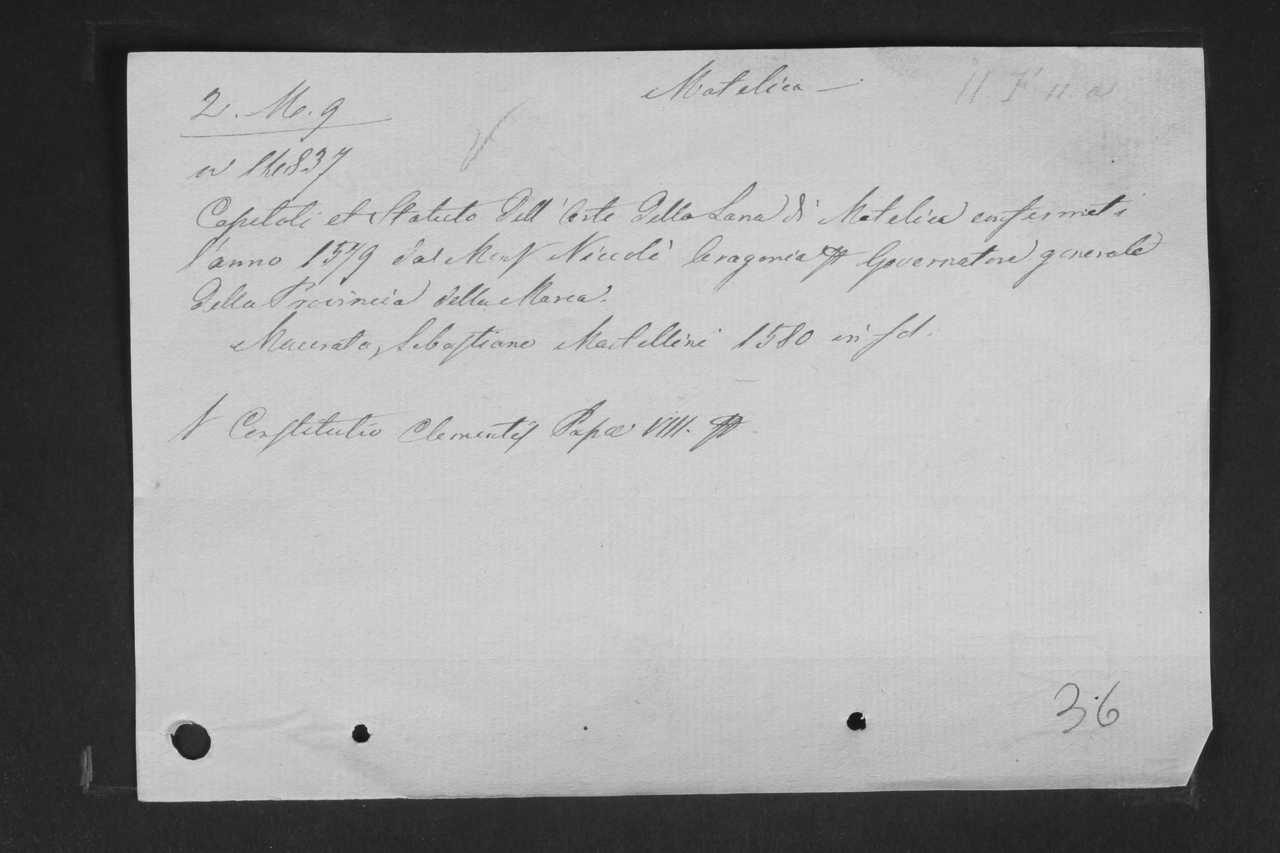 Matelica —
2. M. 9
n 14837
Capitoli et Statuto dell'Arte della Lana di Matelica confermati
l'anno 1579 dal Niccolò Aragonia Governatore generale
della Provincia della Marca.
Macerata, Sebastiano Martellini 1580 in fol.
Constitutio Clementis Papæ VIII.
36